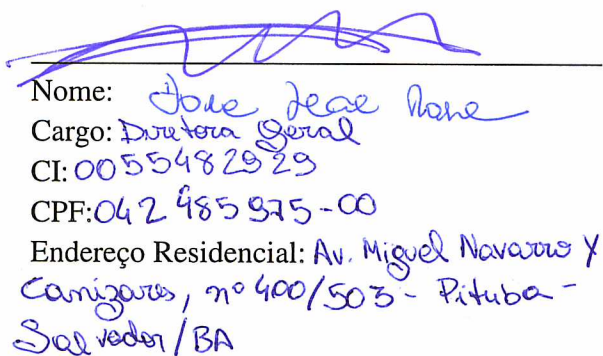 Nome:
Cargo: Diretora Geral
CI: 0055482929
CPF: 042 485 975-00
Endereço Residencial: Av. Miguel Navarro Y
Canizares, nº 400/503 - Pituba -
Salvador/BA